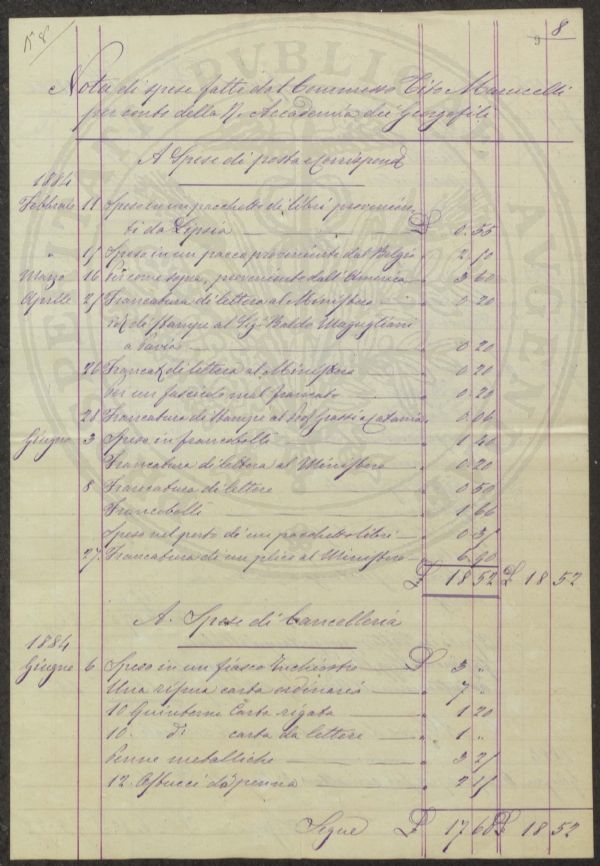 N° 8
8
9
Nota di spese fatte dal Commesso Tito Marucelli
per conto della R. Accademia dei Georgofili
A Spese di posta e Corrispond
1884
Febbraio 11 Speso in un pacchetto di libri provenien
ti da Lipsia £ 0. 55
" 15 Speso in un pacco proveniente dal Belgio " 2. 10
Marzo 16 Per come sopra, proveniente dall'America " 3. 60
Aprile 25 Francatura di lettera al Ministero " 0. 20
di stampe al Sig. Baldo
a Pavia " 0. 20
26 Francat di lettera al Ministero " 0. 20
Per un fascicolo mal francato " 0. 20
28 Francatura di stampe al Prof Grassi a Catania " 0. 06
Giugno 3 Speso in francobolli " 1. 40
Francatura di lettera al Ministero " 0. 20
8 Francatura di lettere " 0. 50
Francobolli " 1. 66
Speso nel porto di un pacchetto libri " 0. 35
27 Francatura di un plico al Ministero "
£ 18 52 £ 18 52
A. Spese di Cancelleria
1884
Giugno 6 Speso in un fiasco Inchiostro £ 3 "
Una risma carta ordinaria " 7 "
10 Quinterni Carta rigata " 1 20
10. di carta da lettere " 1 "
Penne metalliche " 3 25
12. Astucci da penna " 2 25
Segue £ 17 68 £ 18 52
PVBLIC